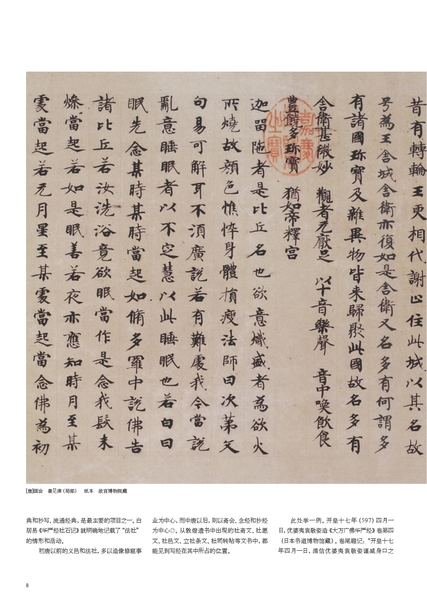 昔有轉輪王更相代謝止住此城以其名故
号為王舍城舍衛亦復如是舍衛又名多有何謂多
有諸國珎寶及雜異物皆来歸聚此國故名多有
舍衛甚微妙 觀者无猒足 以十音樂聲 音中喚飲食
豐饒多珎寶 猶如帝釋宮
迦留陁者是比丘名也欲意熾盛者為欲火
所燒故顏色憔悴身體損瘦法師曰次第文
句易可解耳不湏廣說若有難處我今當說
亂意睡眠者以不定慧以此睡眠也若白日
眠先念某時某時當起如脩多羅中說佛告
諸比丘若汝洗浴竟欲眠當作是念我髮未
燥當起若如是眠善若夜亦應知時月至某
處當起若无月星至某處當起當念佛為初
[唐]国诠 善见律（局部） 纸本 故宫博物院藏
典和抄写、流通经典，是最主要的项目之一。白
居易《华严经社石记》就明确地记载了“法社”
的情形和活动。
初唐以前的义邑和法社，多以造像修窟事
业为中心，而中唐以后，则以斋会、念经和抄经
为中心◎。从敦煌遗书中出现的社斋文、社愿
文、社邑文、立社条文、社司转帖等文书中，都
能见到写经在其中所占的位置。
此处举一例。开皇十七年（597）四月一
日，优婆夷袁敬姿造《大方广佛华严经》卷第四
（日本书道博物馆藏），卷尾题记：“开皇十七
年四月一日，清信优婆夷袁敬姿谨减身口之
8